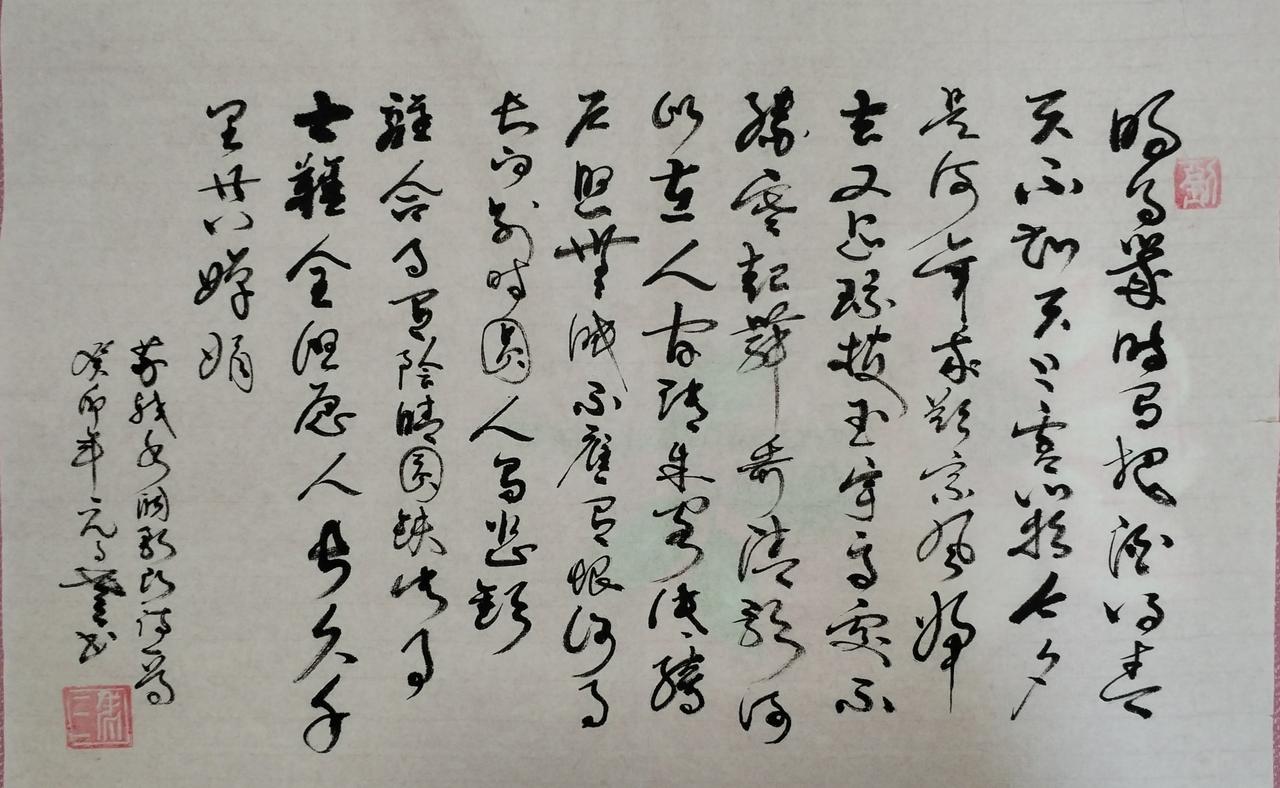 明月幾時有把酒问青
天不知天上宫阙今夕
是何年我欲乘風歸
去又恐瓊樓玉宇高處不
勝寒起舞弄清影何
似在人间转朱阁低绮
户照無眠不應有恨何事
长向别時圆人有悲歡
離合月有陰晴圓缺此事
古難全但愿人長久千
里共嬋娟
苏轼水调歌头
癸卯年元月书